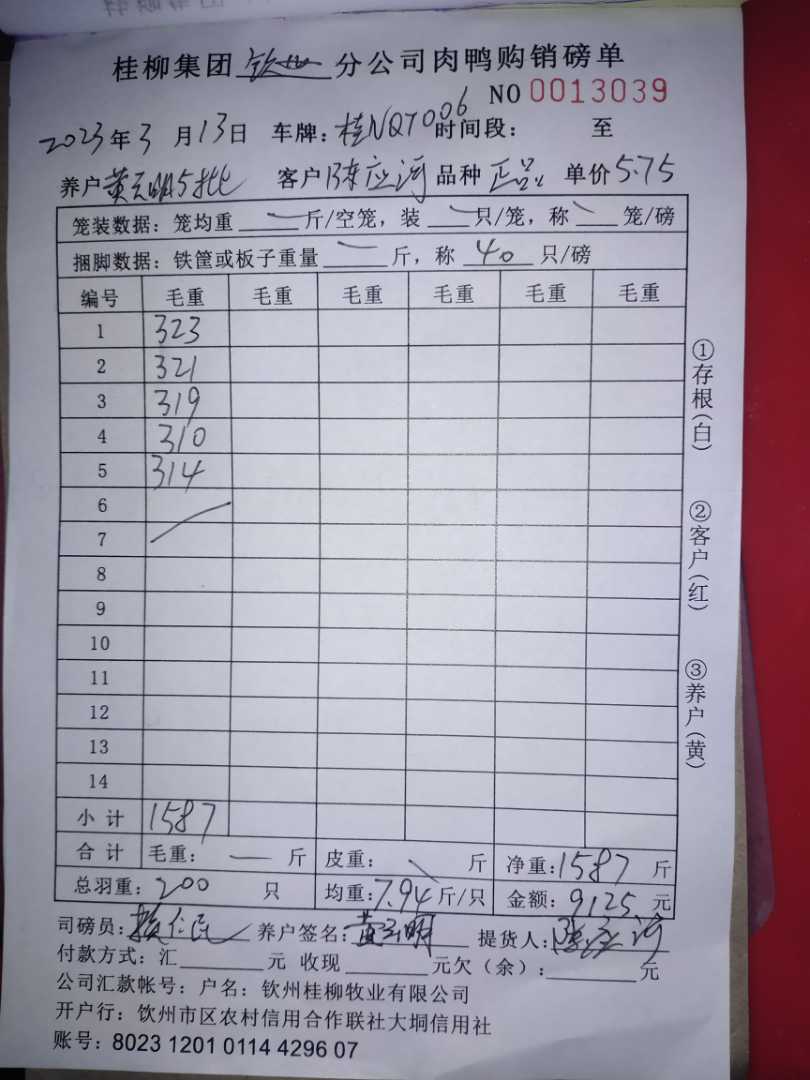 桂柳集团 钦州 分公司肉鸭购销磅单
NO 0013039
2023年3月13日 车牌：桂NQT006 时间段： 至
养户 黄云明5批 客户 陈应河 品种 正品 单价 5.75
笼装数据：笼均重 斤/空笼，装 只/笼，称 笼/磅
捆脚数据：铁筐或板子重量 斤，称 40 只/磅
编号 毛重 毛重 毛重 毛重 毛重 毛重
1 323
2 321
3 319
4 310
5 314
6
7
8
9
10
11
12
13
14
小计 1587
合计 毛重： 斤 皮重： 斤 净重：1587 斤
总羽重：200 只 均重：7.94 斤/只 金额：9125 元
司磅员： 养户签名：黄云明 提货人：陈应河
付款方式：汇 元 收现 元欠（余）： 元
公司汇款帐号：户名：钦州桂柳牧业有限公司
开户行：钦州市区农村信用合作联社大垌信用社
账号：8023 1201 0114 4296 07
①存根（白）
②客户（红）
③养户（黄）